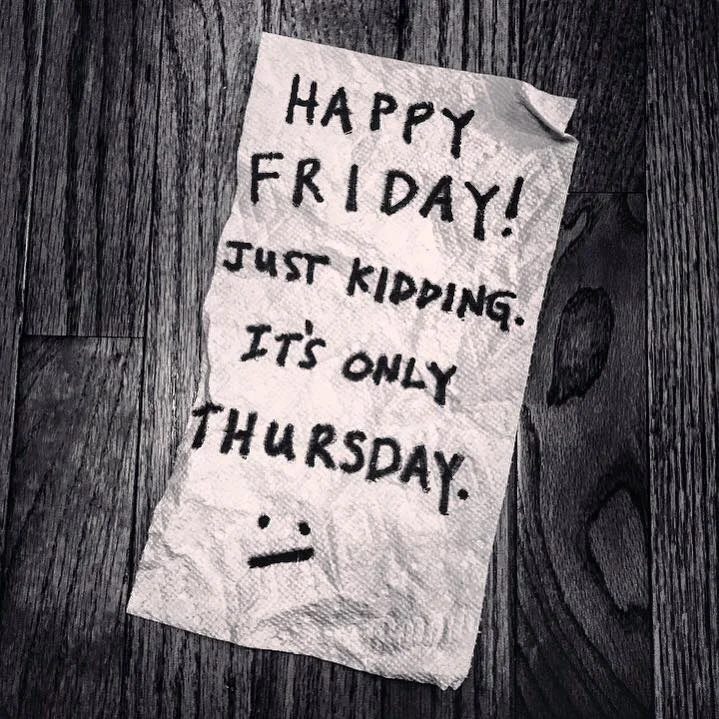 HAPPY
FRIDAY!
JUST KIDDING.
IT'S ONLY
THURSDAY.